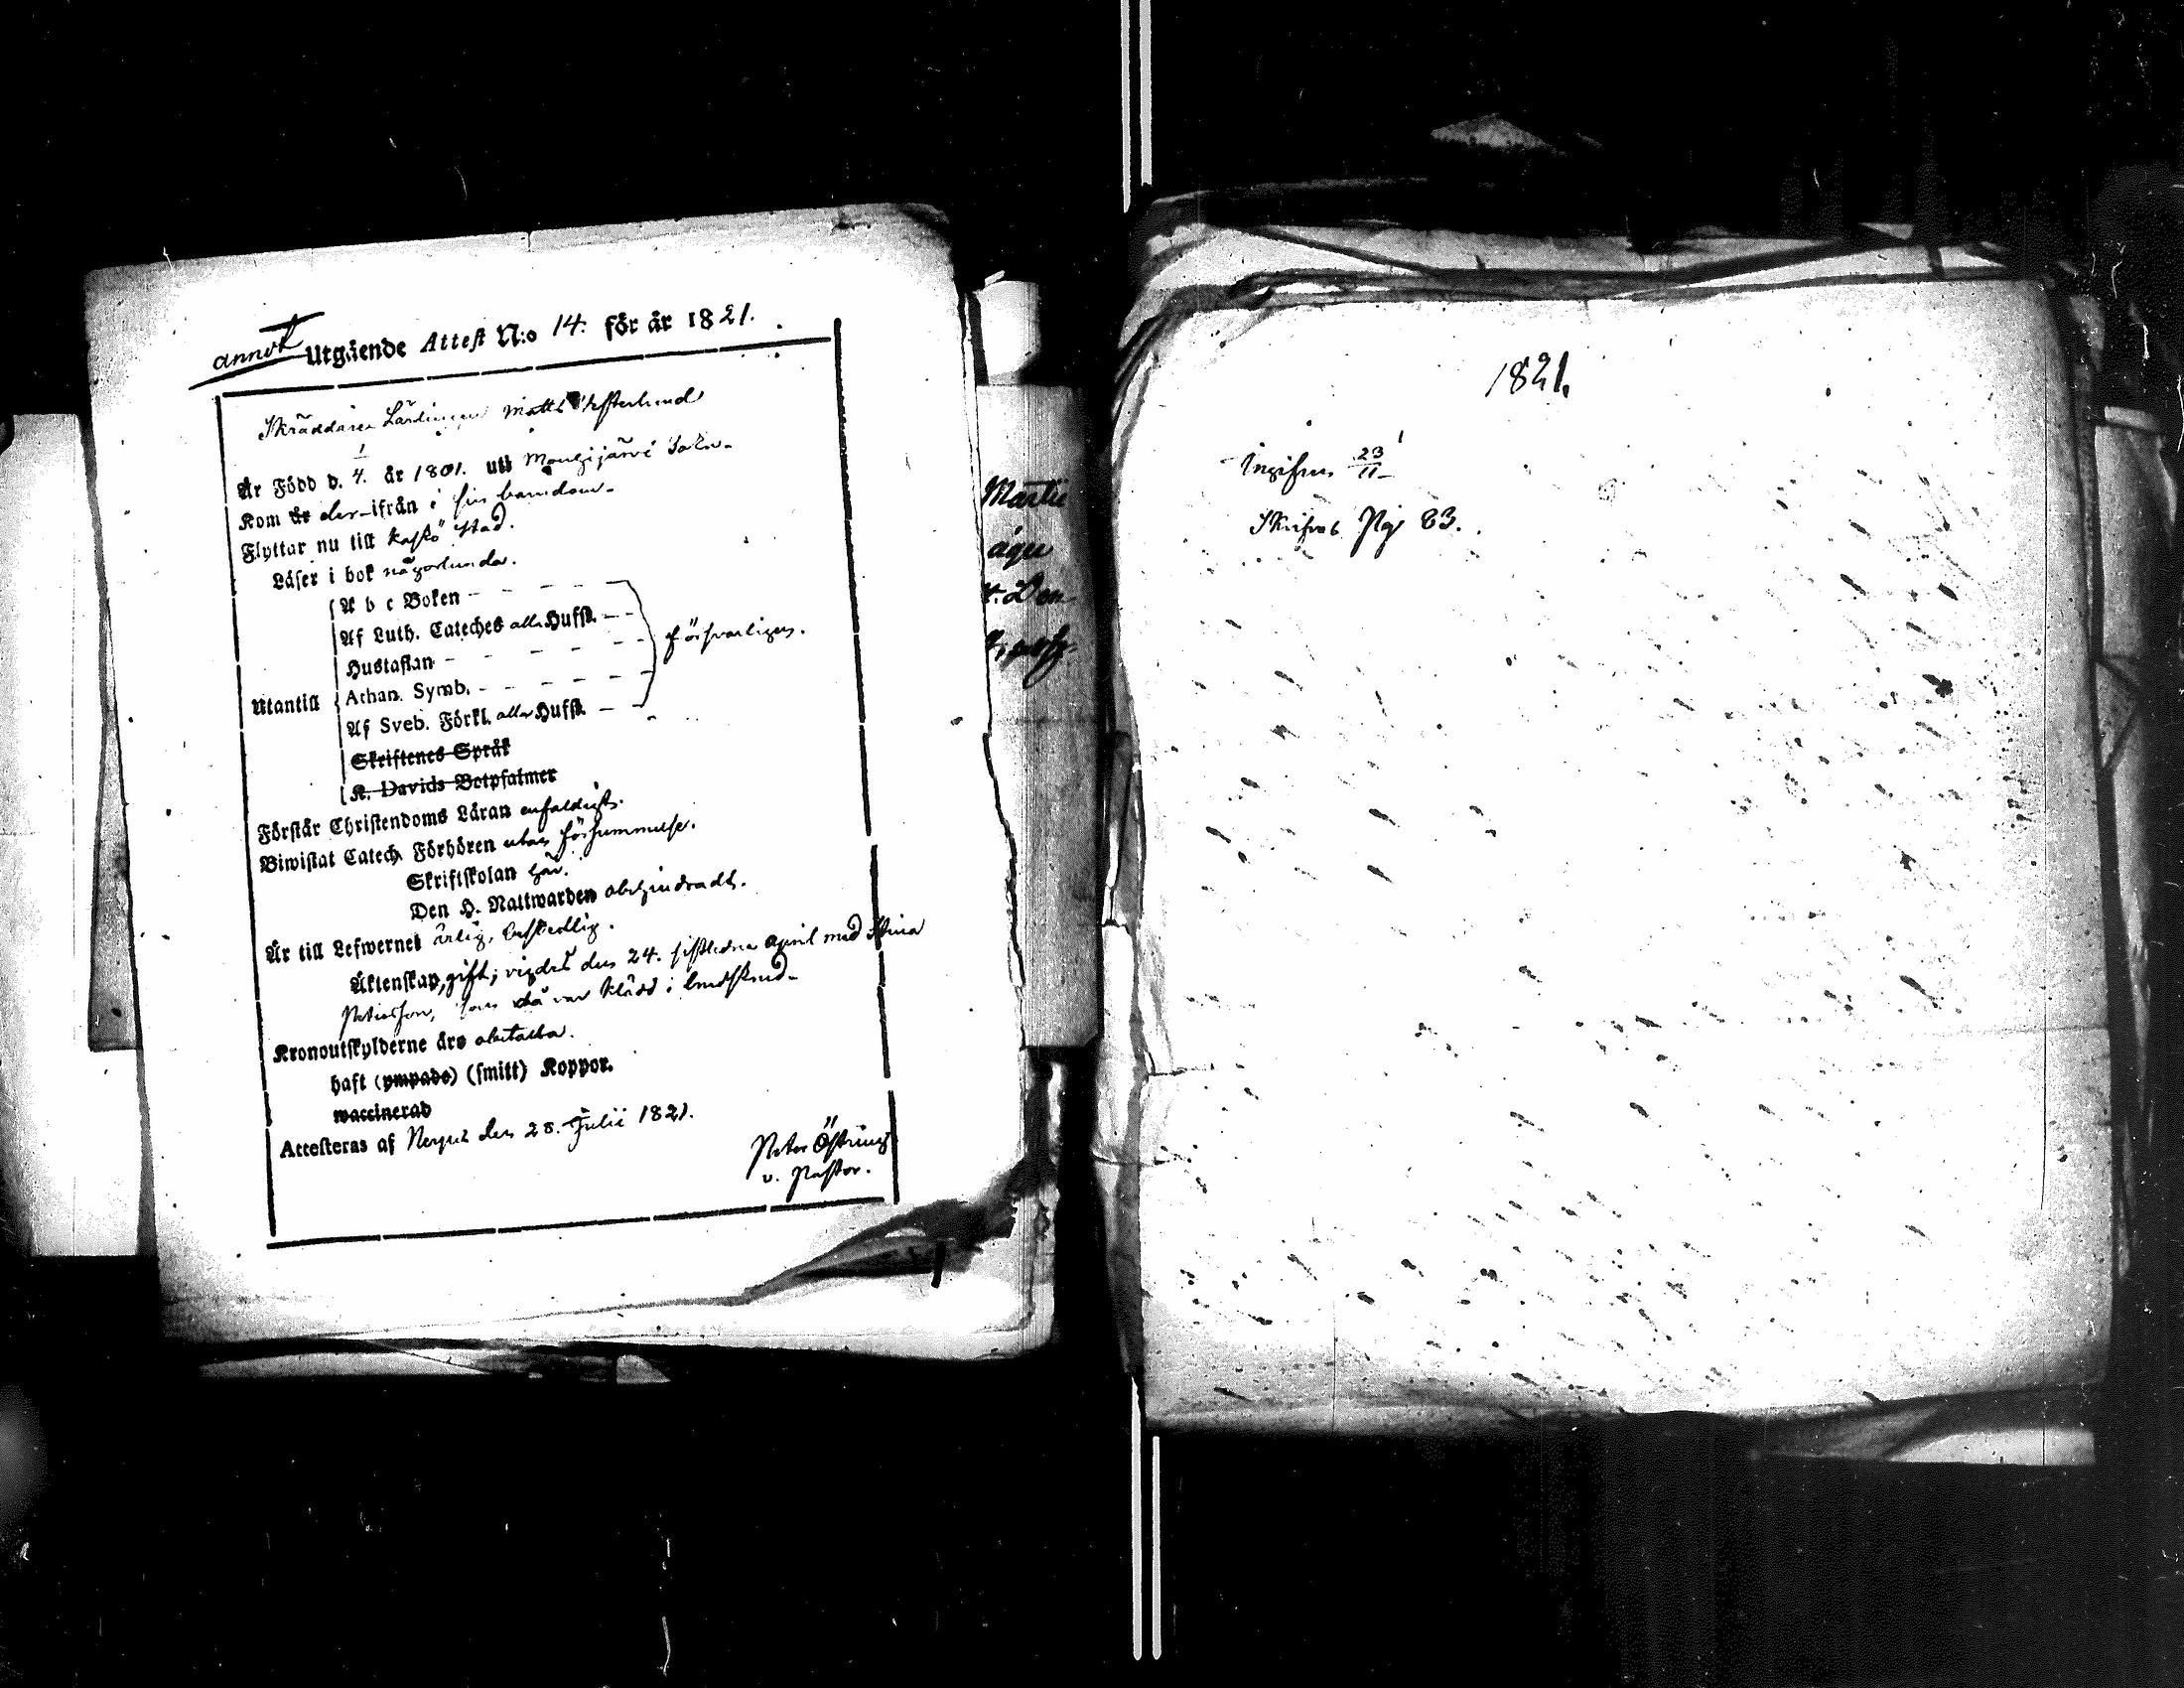 annot
Utgående Attest N:o 14. för år 1821.
Skräddare Lärlingen Matts Westerlund
Är Född d. 1/4. år 1801. uti Mouhijärvi Sokn.
Kom år der-ifrån i sin barndom.
Flyttar nu till Kaskö stad.
Läser i bok någorlunda.
A b c Boken
Af Luth. Cateches alla Hufst.
Hustaflan
försvarligen.
Utantill
Athan. Symb.
Af Sveb. Förkl. alla Hufst.
Skriftenes Språk
K. Davids Botpsalmer
Förstår Christendoms Läran enfaldigt.
Biwistat Catech. Förhören utan försummelse.
Skriftskolan här.
Den H. Nattwarden obehindradt.
Är till Lefwernet ärlig, beskedlig.
Äktenskap, gift; vigdes den 24. sistledne April med Stina
som då var klädd i
Kronoutskylderne äro obetalta.
haft (ympade) (smitt) Koppor.
waccinerad
Attesteras af Nerpes den 28. Julii 1821.
Peter Östring
v. Pastor.
Martii
ågu
Den
1821.
Ingifven 23/11
Skrifvat Pag 83.